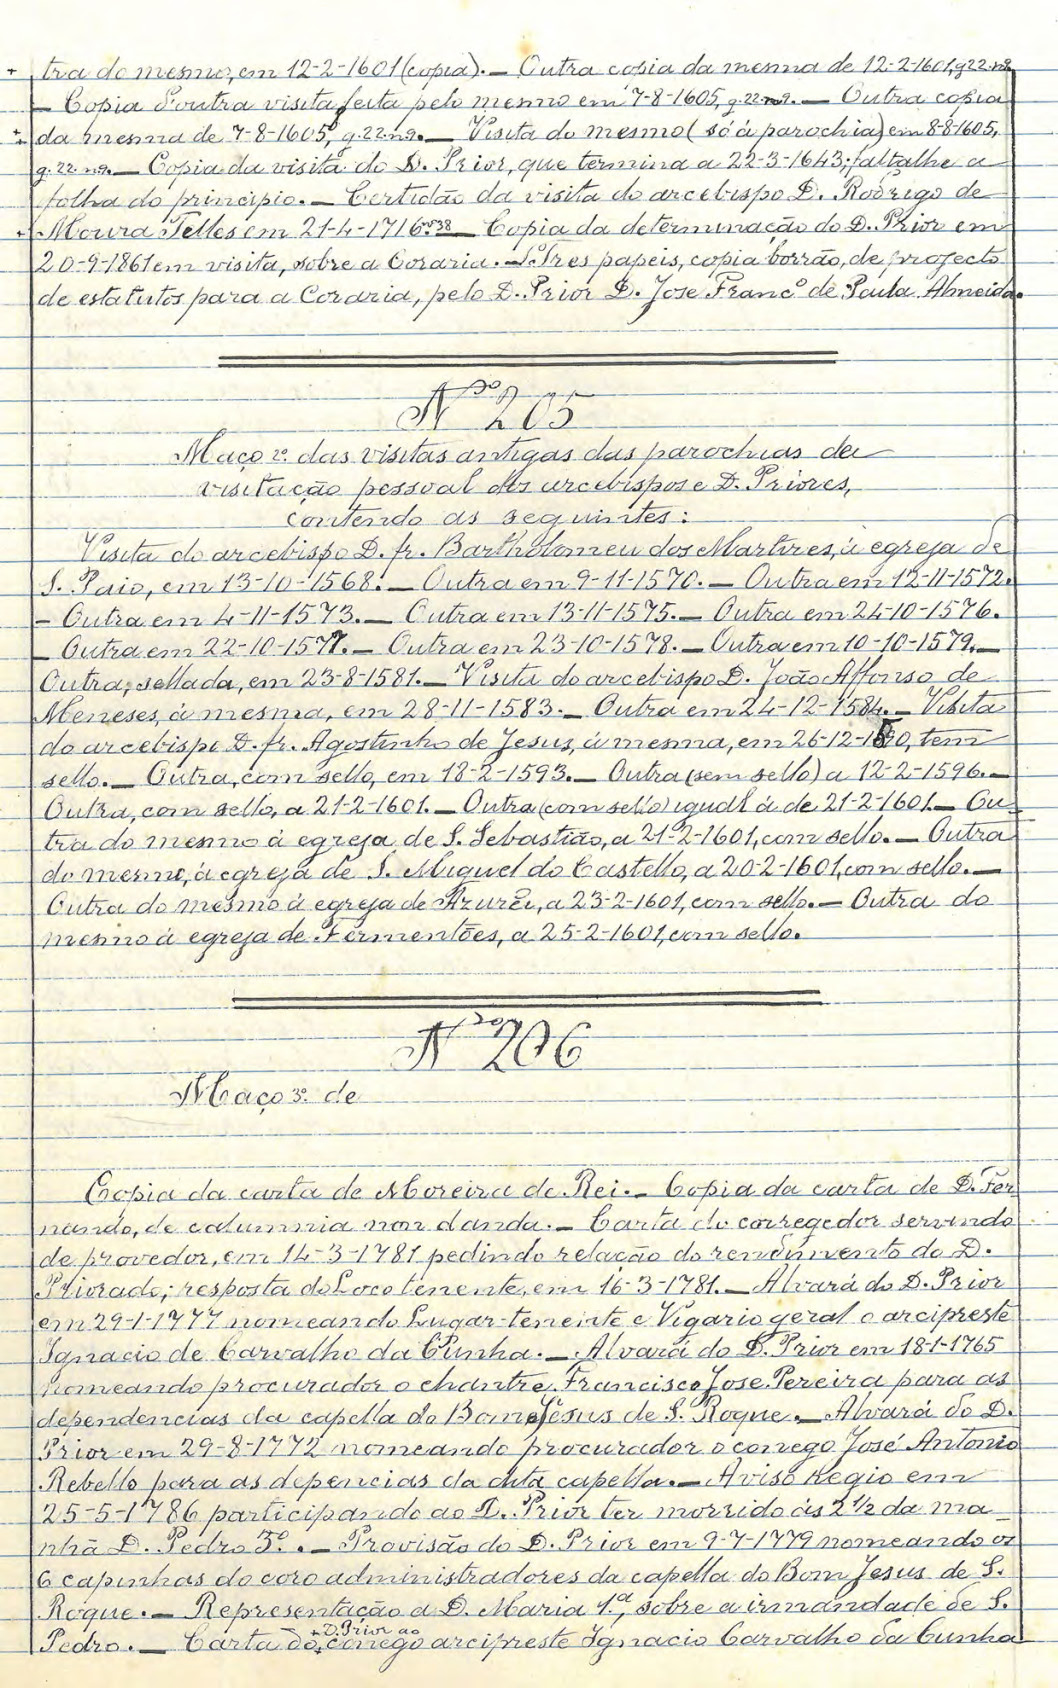 + tra do mesmo, em 12-2-1601 (copia). — Outra copia da mesma de 12-2-1601, g 22 nº 9.
— Copia d'outra visita feita pelo mesmo em 7-8-1605, g. 22 nº 9. — Outra copia
+ da mesma de 7-8-1605, g. 22 nº 9. — Visita do mesmo (só á parochia) em 8-8-1605,
g. 22 nº 9. — Copia da visita do D. Prior, que termina a 22-3-1643; faltalhe a
folha do principio. — Certidão da visita do arcebispo D. Rodrigo de
+ Moura Telles em 21-4-1716 nº 38 — Copia da determinação do D. Prior em
20-9-1861 em visita, sobre a Coraria. — Tres papeis, copia borrão, de projecto
de estatutos para a Coraria, pelo D. Prior D. Jose Francº de Paula Almeida.
Nº 205
Maço 2º das visitas antigas das parochias da
visitação pessoal dos arcebispos e D. Priores,
contendo as seguintes:
Visita do arcebispo D. fr. Bartholomeu dos Martires, á egreja de
S. Paio, em 13-10-1568. — Outra em 9-11-1570. — Outra em 12-11-1572.
— Outra em 4-11-1573. — Outra em 13-11-1575. — Outra em 24-10-1576.
— Outra em 22-10-1577. — Outra em 23-10-1578. — Outra em 10-10-1579. —
Outra, sellada, em 23-8-1581. — Visita do arcebispo D. João Affonso de
Meneses, á mesma, em 28-11-1583. — Outra em 24-12-1584. — Visita
do arcebispo D. fr. Agostinho de Jesus, á mesma, em 26-12-1590, tem
sello. — Outra, com sello, em 18-2-1593. — Outra (sem sello) a 12-2-1596. —
Outra, com sello, a 21-2-1601. — Outra (com sello) igual á de 21-2-1601. — Ou-
tra do mesmo á egreja de S. Sebastião, a 21-2-1601, com sello. — Outra
do mesmo, á egreja de S. Miguel do Castello, a 20-2-1601, com sello. —
Outra do mesmo á egreja de Azurêi, a 23-2-1601, com sello. — Outra do
mesmo á egreja de Fermentões, a 25-2-1601, com sello.
Nº 206
Maço 3º de
Copia da carta de Moreira de Rei. — Copia da carta de D. Fer
nando, de calumnia non danda. — Carta do corregedor servindo
de provedor, em 14-3-1781 pedindo relação do rendimento do D.
Priorado; resposta do Loco tenente, em 16-3-1781. — Alvará do D. Prior
em 29-1-1777 nomeando Lugar-tenente e Vigario geral o arcipreste
Ignacio de Carvalho da Cunha. — Alvará do D. Prior em 18-1-1765
nomeando procurador o chantre Francisco Jose Pereira para as
dependencias da capella do Bom Jesus de S. Roque. — Alvará do D.
Prior em 29-8-1772 nomeando procurador o conego José Antonio
Rebello para as depencias da dita capella. — Aviso Regio em
25-5-1786 participando ao D. Prior ter morrido ás 2 ½ da ma-
nhã D. Pedro 3º. — Provisão do D. Prior em 9-7-1779 nomeando os
6 capinhas do coro administradores da capella do Bom Jesus de S.
Roque. — Representação a D. Maria 1.ª, sobre a irmandade de S.
+ D. Prior ao
Pedro. — Carta do + conego arcipreste Ignacio Carvalho da Cunha